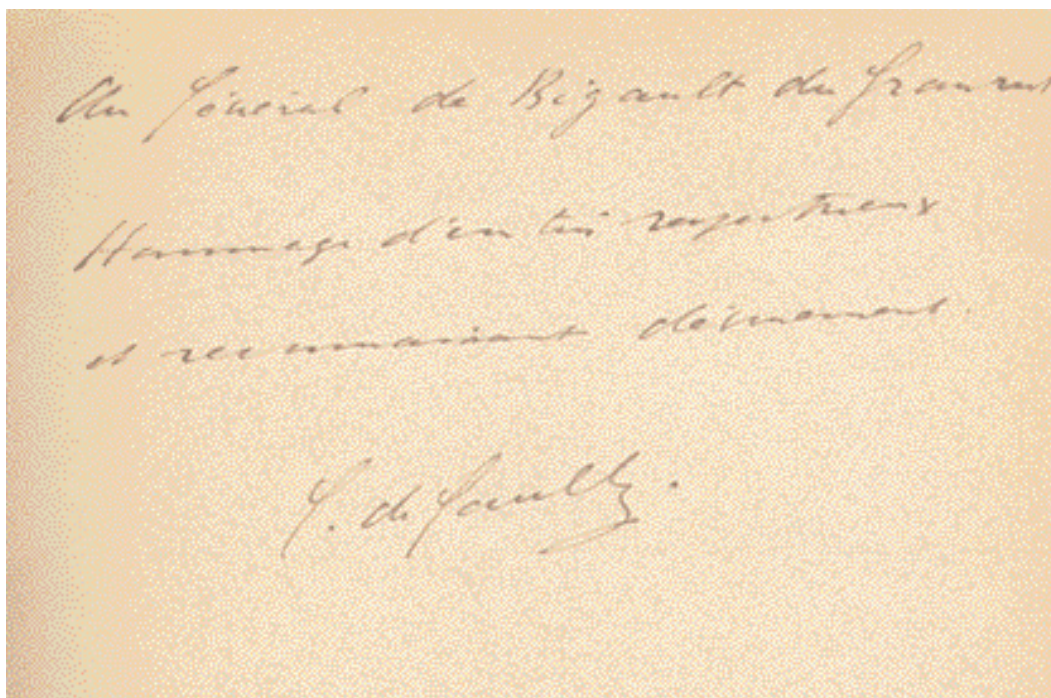 Au Général de Bigault du Granrut
Hommage d'un très respectueux
et reconnaissant dévouement.
C. de Gaulle.